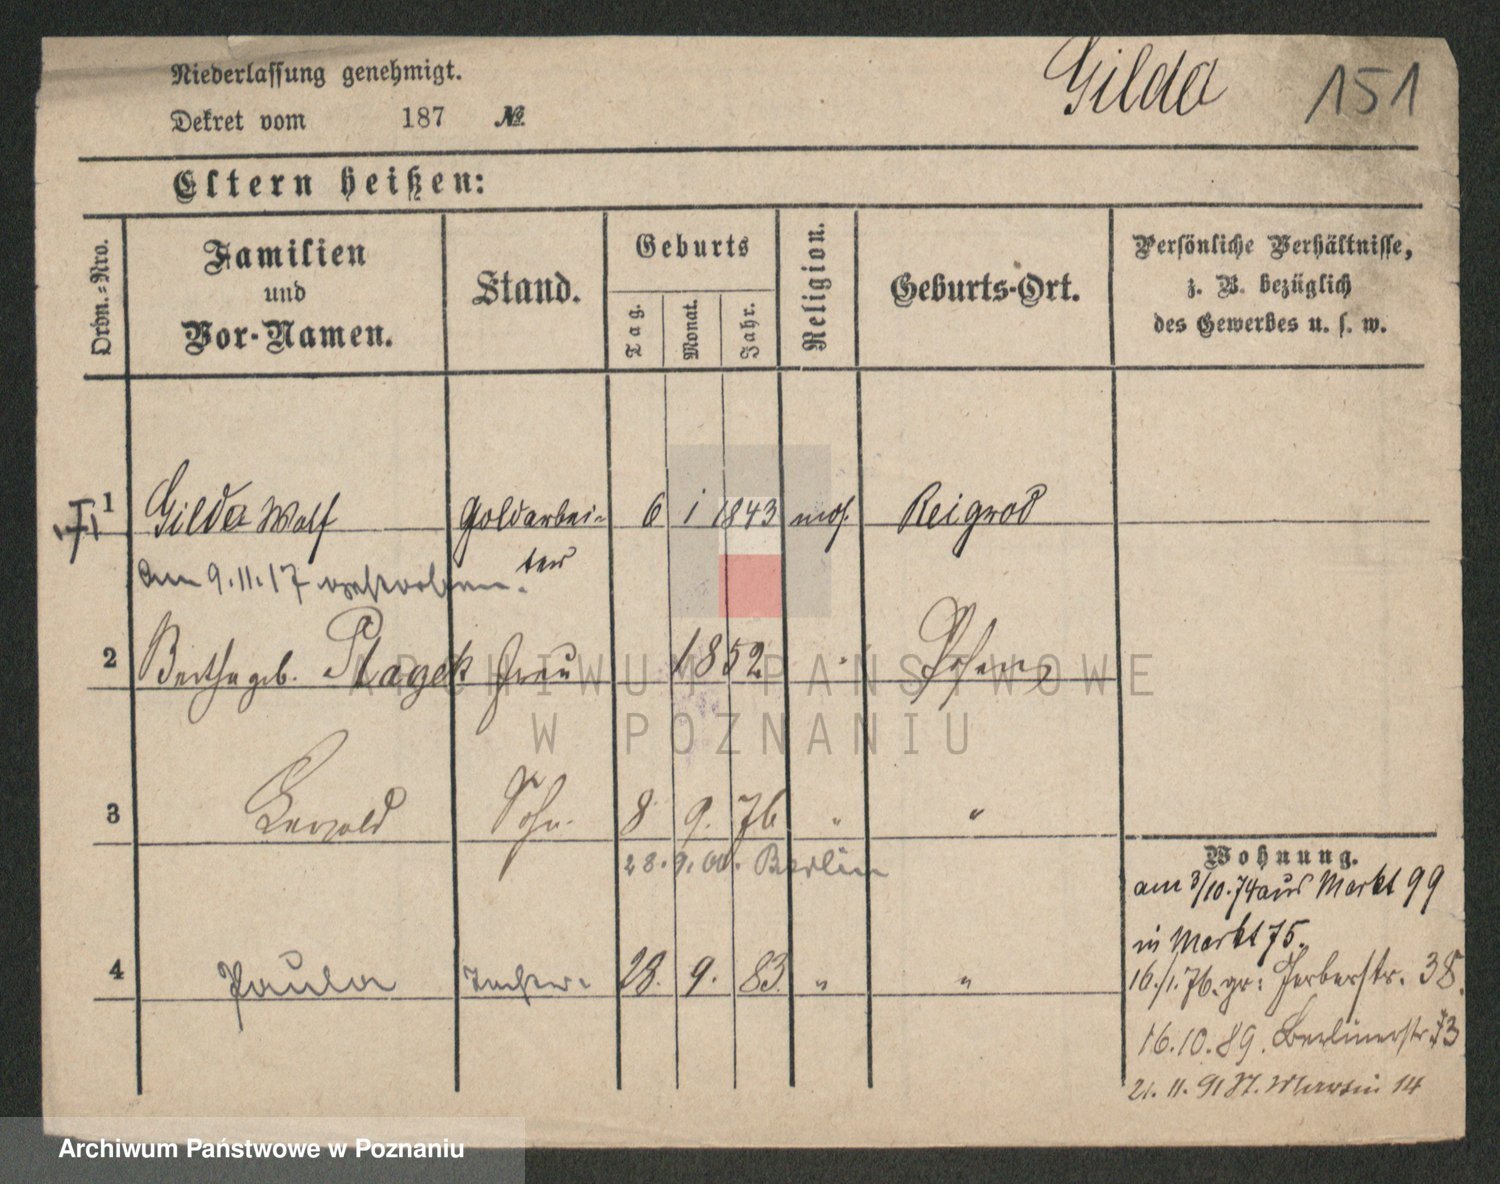 Niederlassung genehmigt.
Gilda 151
Dekret vom 187 №
Eltern heißen:
Ordn.-Nro.
Familien und Vor-Namen.
Stand.
Geburts
Tag.
Monat.
Jahr.
Religion.
Geburts-Ort.
Persönliche Verhältnisse,
z. B. bezüglich
des Gewerbes u. s. w.
1 Gilda Wolf Goldarbei- 6 1 1843 mos. Reigrod
ter
am 9.11.17 gestorben.
2 Bertha geb. Plagek Frau 1852 " Posen
3 Leopold Sohn 8 9. 76 " "
28.9.00. Berlin
4 Paula Tochter 28. 9. 83 " "
Wohnung.
am 3/10.74 aus Markt 99
in Markt 75.
16./1.76. gr: Gerberstr. 38.
16.10.89. Berlinerstr. 13
21.11.91 St. Martin 14
ARCHIWUM PAŃSTWOWE
W POZNANIU
Archiwum Państwowe w Poznaniu